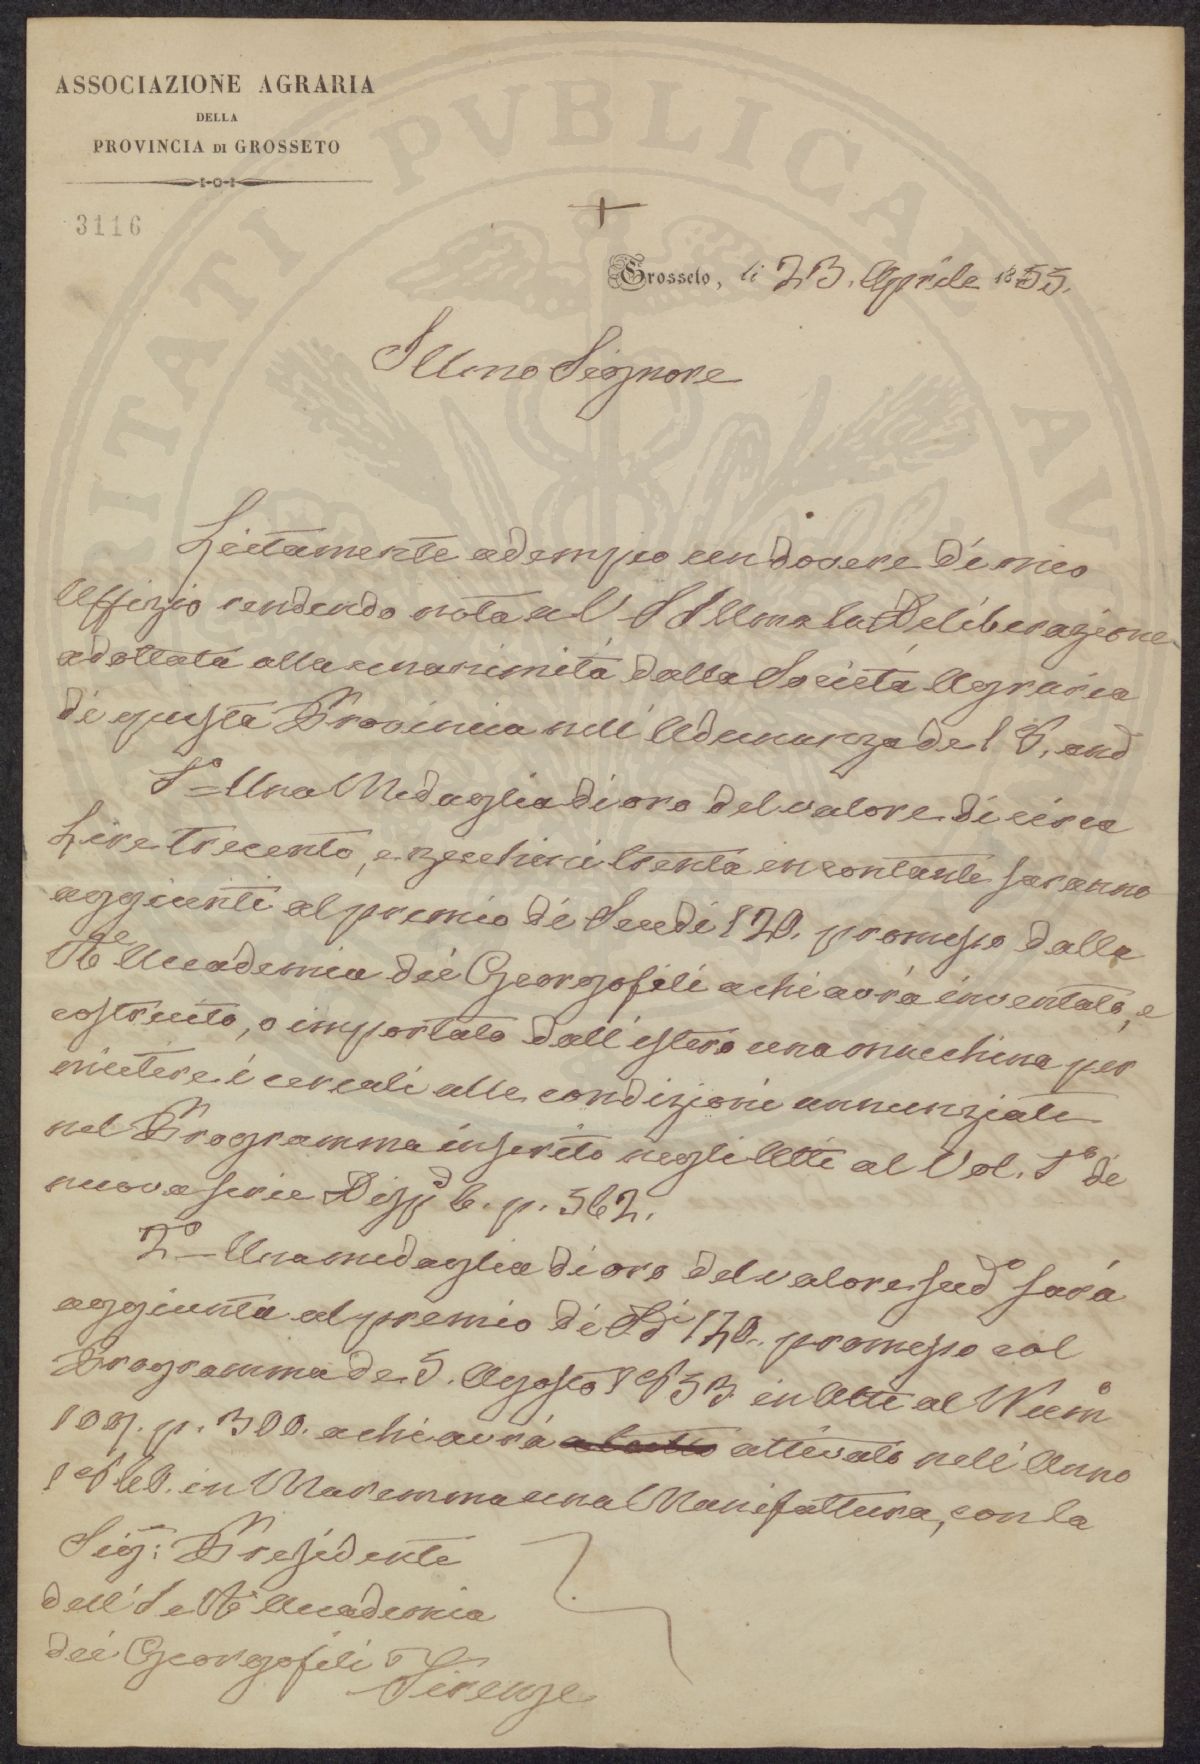 ASSOCIAZIONE AGRARIA
DELLA
PROVINCIA DI GROSSETO
3116
Grosseto, li 23. Aprile 1855.
Illmo Signore
Lietamente adempio un dovere di mio
Uffizio rendendo nota a V. S. Illma la Deliberazione
adottata alla unanimità dalla Società Agraria
di questa Provincia nell' Adunanza del 5. and
1º = Una Medaglia di oro del valore di circa
Lire trecento, e zecchini trenta in contanti saranno
aggiunti al premio di Scudi 120. promesso dalla
Rle Accademia dei Georgofili a chi avrà inventato, e
costruito, o importato dall' estero una macchina per
mietere i cereali alle condizioni annunziate
nel Programma inserito negli Atti al Vol. 1º di
nuova serie Dispa 6. p. 562.
2º — Una medaglia di oro del valore sudº sarà
aggiunta al premio di Sdi 120. promesso col
Programma de 5. Agosto 1853. in Atti al Numº
109. p. 300. a chi avrà attivato nell' Anno
1860. in Maremma una Manifattura, con la
Sig: Presidente
dell' I. e R. Accademia
dei Georgofili
Firenze
PVBLICAE